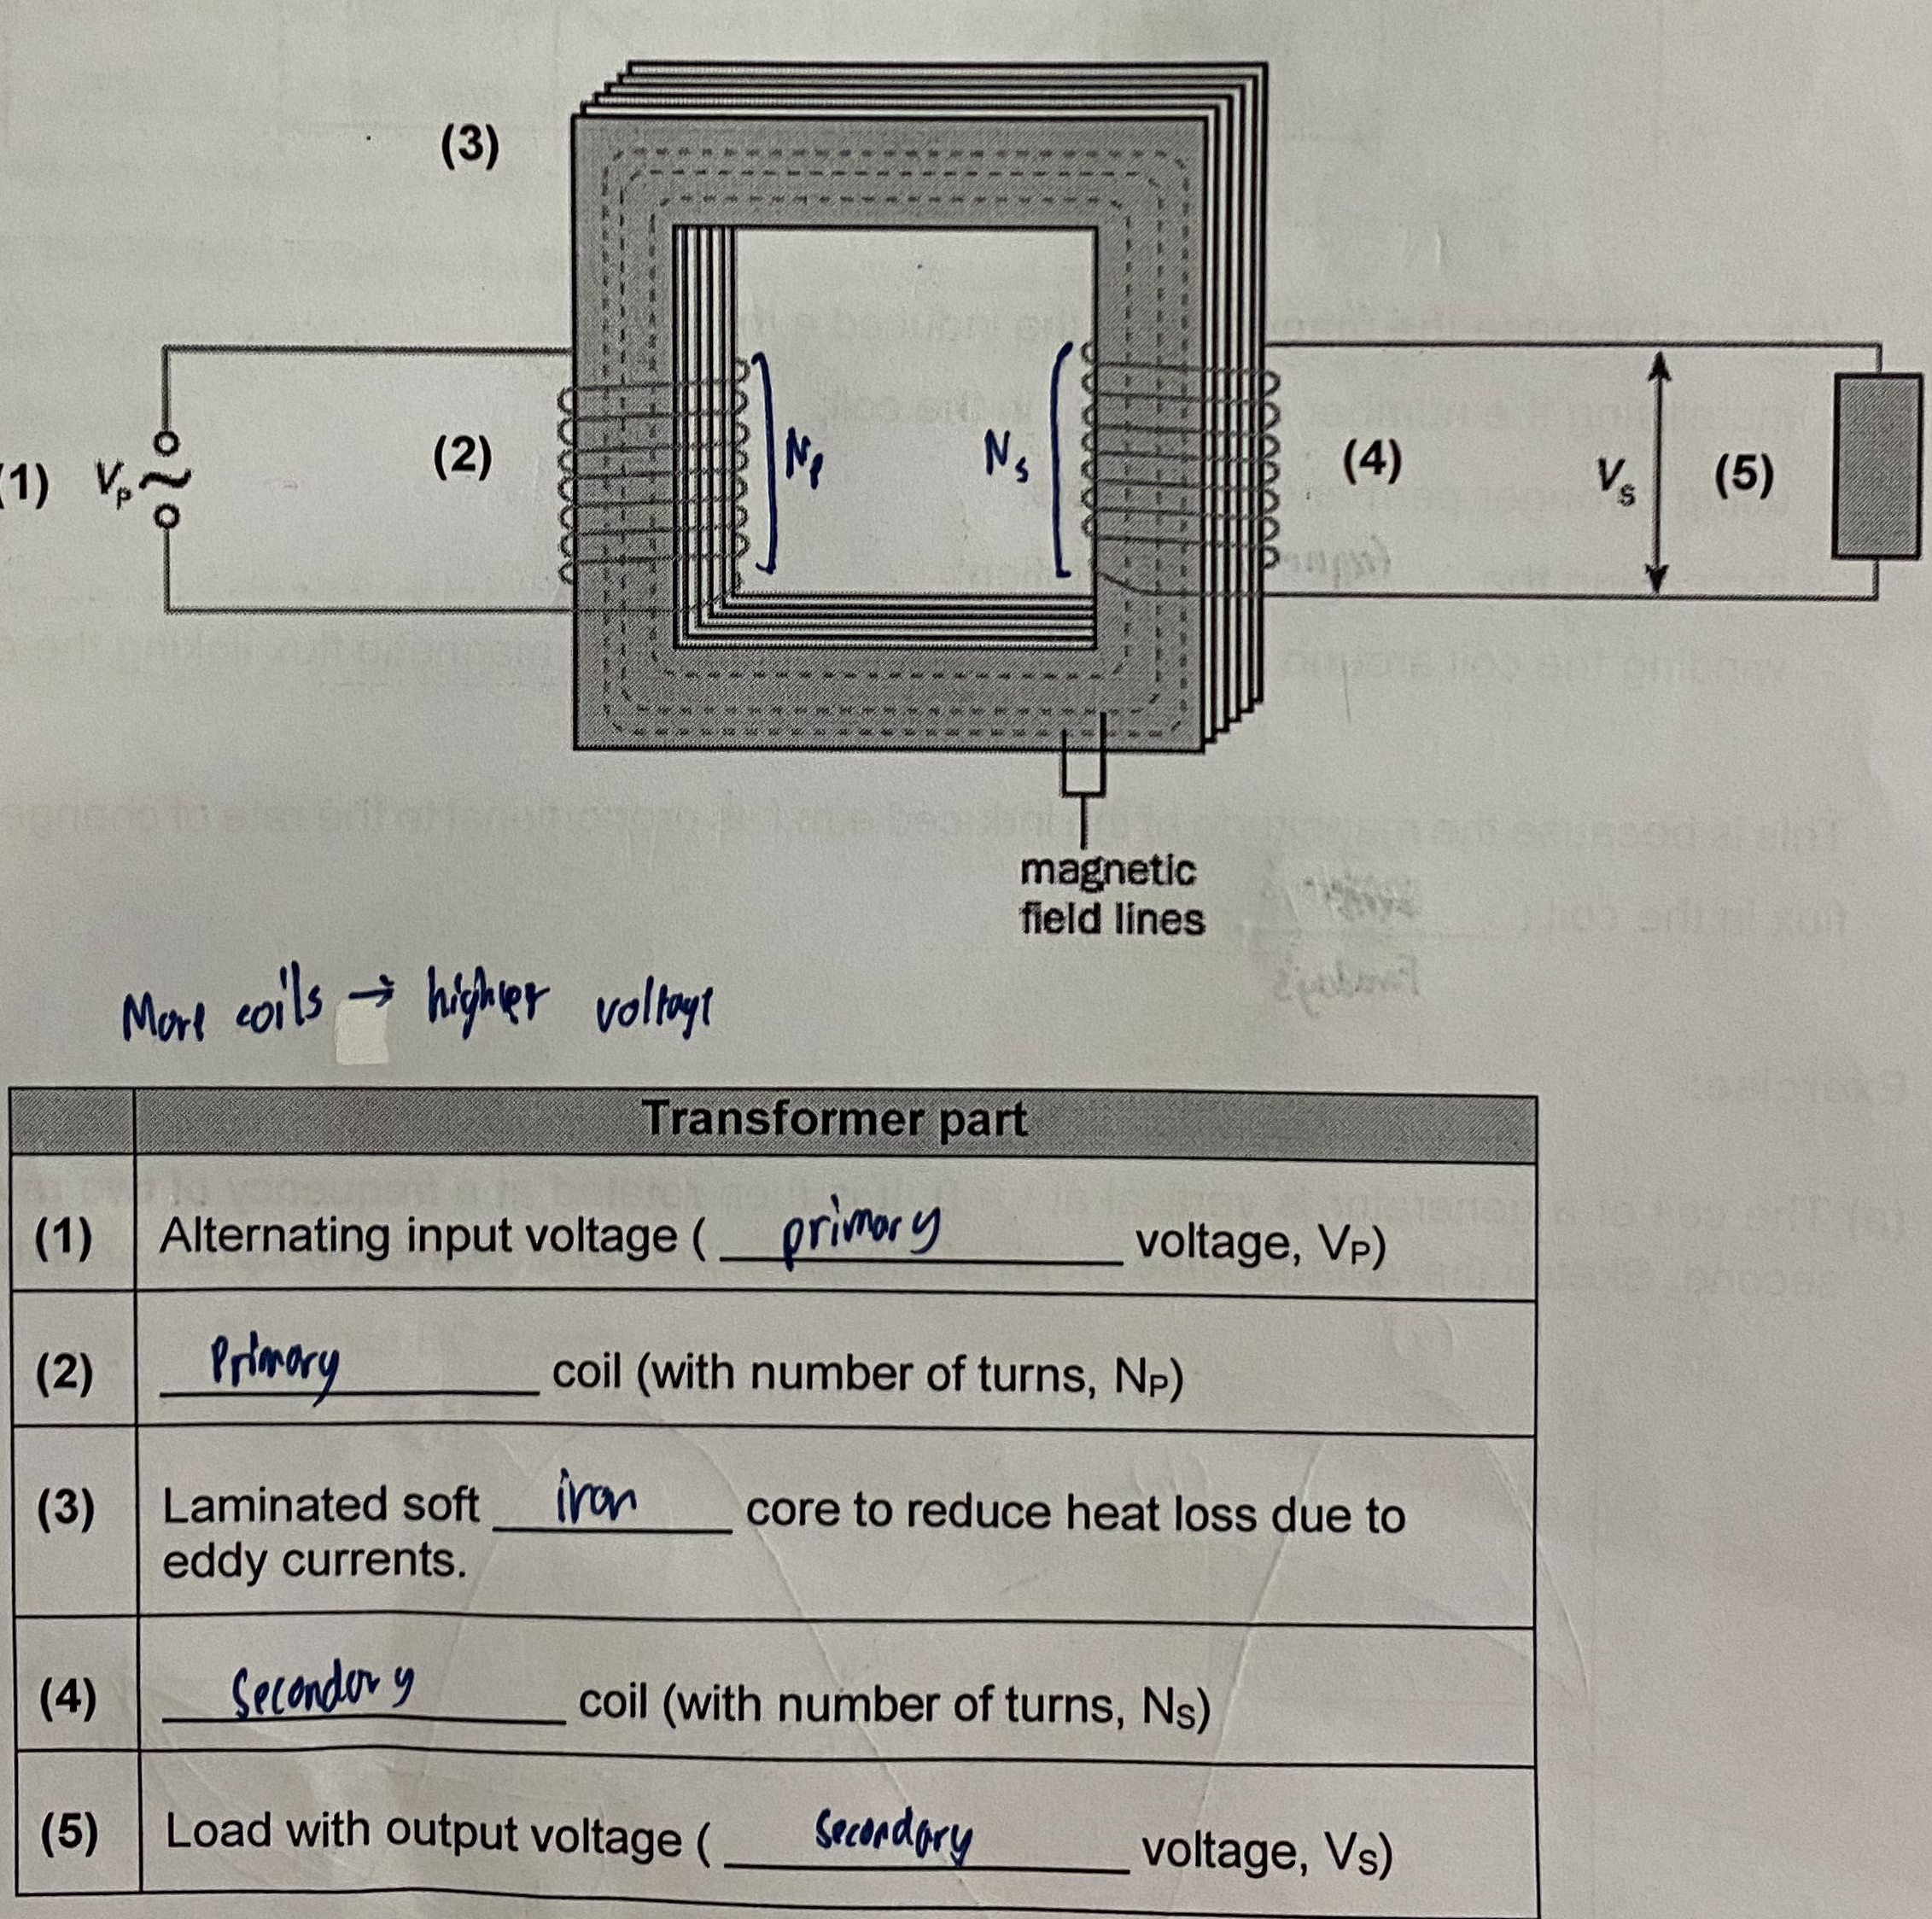 (3)
(1) Vp (2) Np Ns (4) Vs (5)
magnetic
field lines
More coils → higher voltage
Transformer part
(1) Alternating input voltage ( primary voltage, VP)
(2) Primary coil (with number of turns, NP)
(3) Laminated soft iron core to reduce heat loss due to
eddy currents.
(4) Secondary coil (with number of turns, NS)
(5) Load with output voltage ( Secondary voltage, VS)